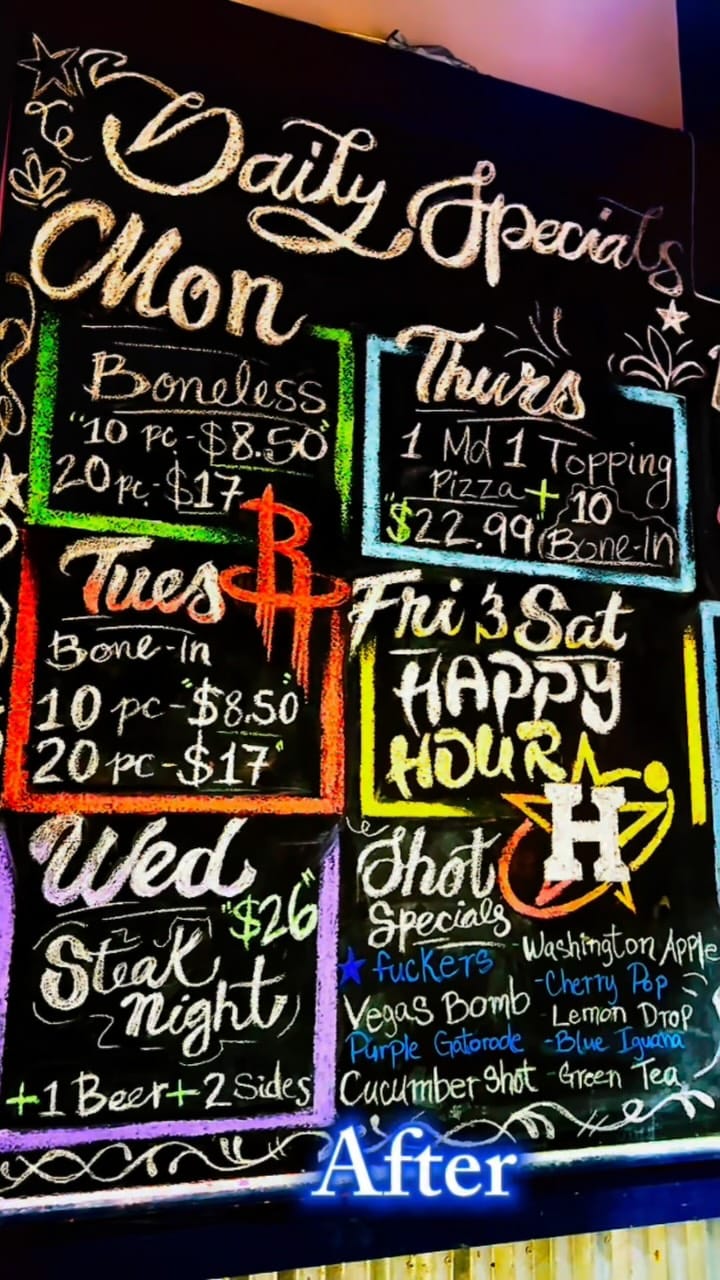 Daily Specials
Mon
Boneless
"10 pc.-$8.50"
20 pc.-$17
Tues
Bone-In
10 pc-"$8.50"
20 pc-$17"
Wed
"$26"
Steak
Night
+1 Beer+2 Sides
Thurs
1 Md 1 Topping
Pizza + 10
"$22.99" Bone-In
Fri & Sat
HAPPY
HOUR
H
Shot
Specials
★ fuckers
Vegas Bomb
Purple Gatorade
Cucumber Shot
-Washington Apple
-Cherry Pop
-Lemon Drop
-Blue Iguana
-Green Tea
After